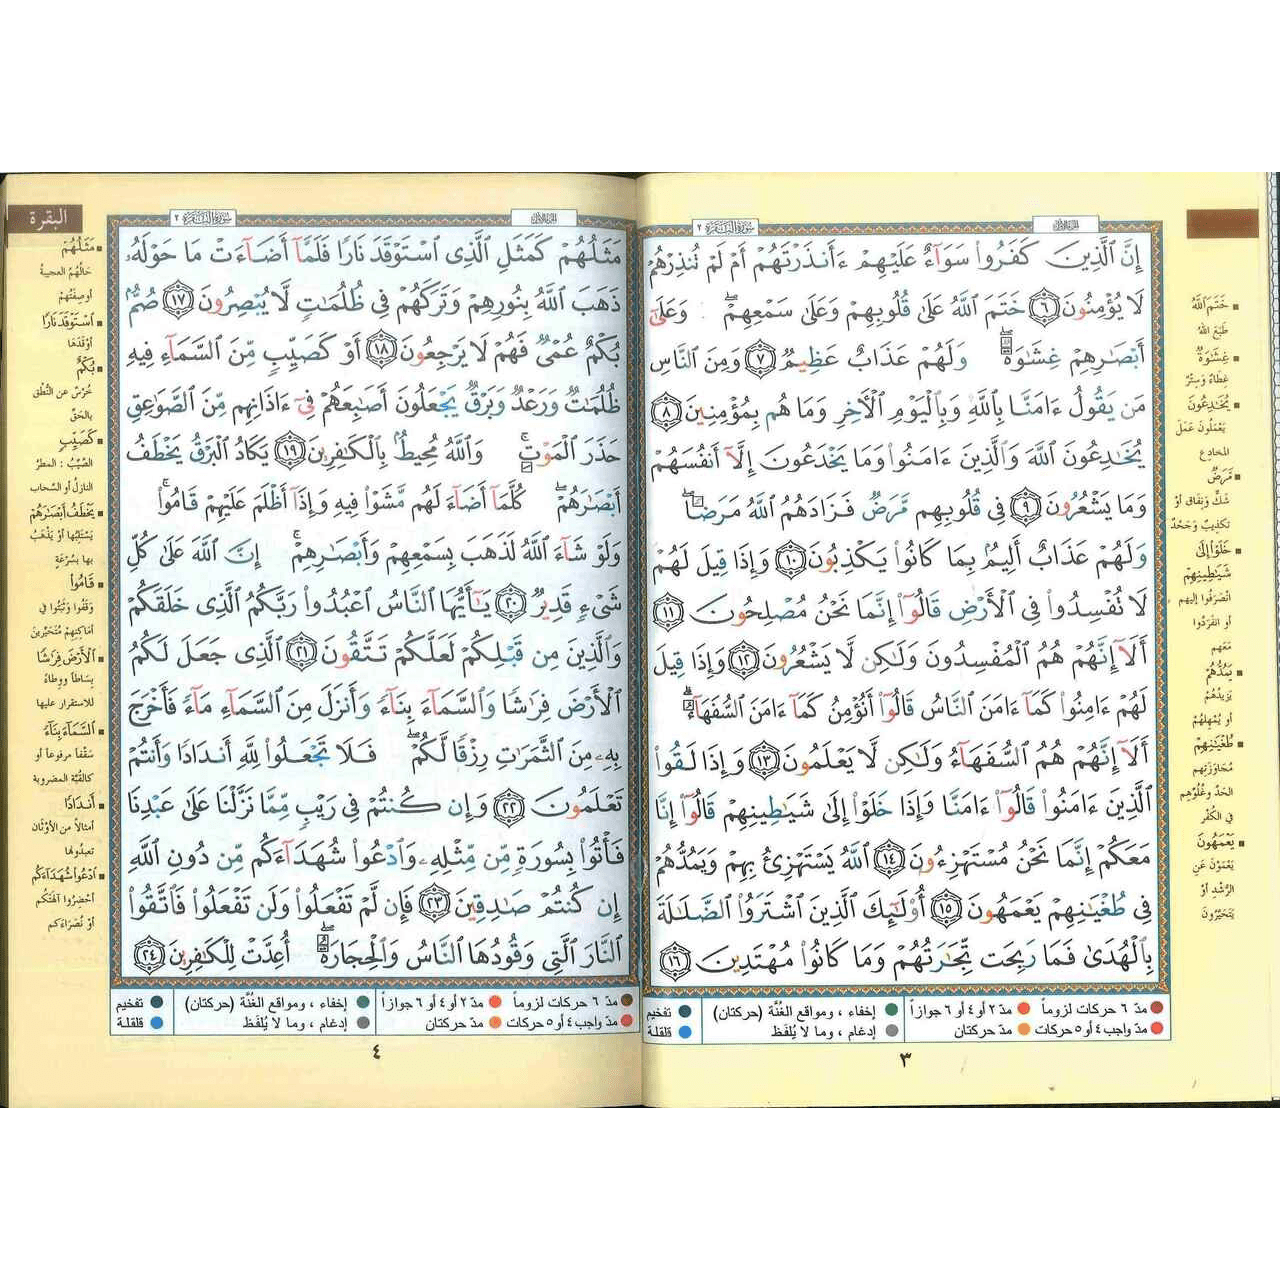 الجزء الأول
سورة البقرة ٢
إِنَّ الَّذِينَ كَفَرُوا سَوَآءٌ عَلَيْهِمْ ءَأَنذَرْتَهُمْ أَمْ لَمْ تُنذِرْهُمْ
لَا يُؤْمِنُونَ ٦ خَتَمَ اللَّهُ عَلَىٰ قُلُوبِهِمْ وَعَلَىٰ سَمْعِهِمْ ۖ وَعَلَىٰٓ
أَبْصَٰرِهِمْ غِشَٰوَةٌ ۖ وَلَهُمْ عَذَابٌ عَظِيمٌ ٧ وَمِنَ النَّاسِ
مَن يَقُولُ ءَامَنَّا بِاللَّهِ وَبِالْيَوْمِ الْأَخِرِ وَمَا هُم بِمُؤْمِنِينَ ٨
يُخَٰدِعُونَ اللَّهَ وَالَّذِينَ ءَامَنُوا وَمَا يَخْدَعُونَ إِلَّآ أَنفُسَهُمْ
وَمَا يَشْعُرُونَ ٩ فِي قُلُوبِهِم مَّرَضٌ فَزَادَهُمُ اللَّهُ مَرَضًا ۖ
وَلَهُمْ عَذَابٌ أَلِيمٌۢ بِمَا كَانُوا يَكْذِبُونَ ١٠ وَإِذَا قِيلَ لَهُمْ
لَا تُفْسِدُوا فِي الْأَرْضِ قَالُوٓا إِنَّمَا نَحْنُ مُصْلِحُونَ ١١
أَلَآ إِنَّهُمْ هُمُ الْمُفْسِدُونَ وَلَٰكِن لَّا يَشْعُرُونَ ١٢ وَإِذَا قِيلَ
لَهُمْ ءَامِنُوا كَمَآ ءَامَنَ النَّاسُ قَالُوٓا أَنُؤْمِنُ كَمَآ ءَامَنَ السُّفَهَآءُ ۗ
أَلَآ إِنَّهُمْ هُمُ السُّفَهَآءُ وَلَٰكِن لَّا يَعْلَمُونَ ١٣ وَإِذَا لَقُوا
الَّذِينَ ءَامَنُوا قَالُوٓا ءَامَنَّا وَإِذَا خَلَوْا إِلَىٰ شَيَٰطِينِهِمْ قَالُوٓا إِنَّا
مَعَكُمْ إِنَّمَا نَحْنُ مُسْتَهْزِءُونَ ١٤ اللَّهُ يَسْتَهْزِئُ بِهِمْ وَيَمُدُّهُمْ
فِي طُغْيَٰنِهِمْ يَعْمَهُونَ ١٥ أُولَٰٓئِكَ الَّذِينَ اشْتَرَوُا الضَّلَٰلَةَ
بِالْهُدَىٰ فَمَا رَبِحَت تِّجَٰرَتُهُمْ وَمَا كَانُوا مُهْتَدِينَ ١٦
خَتَمَ اللَّهُ
طَبَعَ اللهُ
غِشَٰوَةٌ
غِطَاءٌ وَسِتْرٌ
يُخَٰدِعُونَ
يَعْمَلُونَ عَمَلَ
المخادِعِ
مَّرَضٌ
شَكٌّ وَنِفَاق أو
تكذيبٌ وَجَحْدٌ
خَلَوْا إِلَىٰ
شَيَٰطِينِهِمْ
انْصَرَفُوا إليهم
أو انفَرَدُوا
مَعَهم
يَمُدُّهُمْ
يَزيدُهُمْ
أو يُمْهِلُهُمْ
طُغْيَٰنِهِمْ
مُجَاوَزَتِهِم
الحَدَّ وغُلُوِّهِم
في الكُفْر
يَعْمَهُونَ
يَعْمَوْنَ عَنِ
الرُّشْدِ أَوْ
يَتَحَيَّرُونَ
مدّ ٦ حركات لزوماً مدّ ٢ أو ٤ أو ٦ جوازاً إخفاء ، ومواقع الغُنَّة (حركتان) تفخيم
مدّ واجب ٤ أو ٥ حركات مدّ حركتان إدغام ، وما لا يُلفَظ قلقلة
٣
البقرة
الجزء الأول
سورة البقرة ٢
مَثَلُهُمْ كَمَثَلِ الَّذِي اسْتَوْقَدَ نَارًا فَلَمَّآ أَضَآءَتْ مَا حَوْلَهُۥ
ذَهَبَ اللَّهُ بِنُورِهِمْ وَتَرَكَهُمْ فِي ظُلُمَٰتٍ لَّا يُبْصِرُونَ ١٧ صُمٌّۢ
بُكْمٌ عُمْيٌ فَهُمْ لَا يَرْجِعُونَ ١٨ أَوْ كَصَيِّبٍ مِّنَ السَّمَآءِ فِيهِ
ظُلُمَٰتٌ وَرَعْدٌ وَبَرْقٌ يَجْعَلُونَ أَصَٰبِعَهُمْ فِيٓ ءَاذَانِهِم مِّنَ الصَّوَٰعِقِ
حَذَرَ الْمَوْتِ ۚ وَاللَّهُ مُحِيطٌۢ بِالْكَٰفِرِينَ ١٩ يَكَادُ الْبَرْقُ يَخْطَفُ
أَبْصَٰرَهُمْ ۖ كُلَّمَآ أَضَآءَ لَهُم مَّشَوْا فِيهِ وَإِذَآ أَظْلَمَ عَلَيْهِمْ قَامُوا ۚ
وَلَوْ شَآءَ اللَّهُ لَذَهَبَ بِسَمْعِهِمْ وَأَبْصَٰرِهِمْ ۚ إِنَّ اللَّهَ عَلَىٰ كُلِّ
شَيْءٍ قَدِيرٌ ٢٠ يَٰٓأَيُّهَا النَّاسُ اعْبُدُوا رَبَّكُمُ الَّذِي خَلَقَكُمْ
وَالَّذِينَ مِن قَبْلِكُمْ لَعَلَّكُمْ تَتَّقُونَ ٢١ الَّذِي جَعَلَ لَكُمُ
الْأَرْضَ فِرَٰشًا وَالسَّمَآءَ بِنَآءً وَأَنزَلَ مِنَ السَّمَآءِ مَآءً فَأَخْرَجَ
بِهِۦ مِنَ الثَّمَرَٰتِ رِزْقًا لَّكُمْ ۖ فَلَا تَجْعَلُوا لِلَّهِ أَندَادًا وَأَنتُمْ
تَعْلَمُونَ ٢٢ وَإِن كُنتُمْ فِي رَيْبٍ مِّمَّا نَزَّلْنَا عَلَىٰ عَبْدِنَا
فَأْتُوا بِسُورَةٍ مِّن مِّثْلِهِۦ وَادْعُوا شُهَدَآءَكُم مِّن دُونِ اللَّهِ
إِن كُنتُمْ صَٰدِقِينَ ٢٣ فَإِن لَّمْ تَفْعَلُوا وَلَن تَفْعَلُوا فَاتَّقُوا
النَّارَ الَّتِي وَقُودُهَا النَّاسُ وَالْحِجَارَةُ ۖ أُعِدَّتْ لِلْكَٰفِرِينَ ٢٤
مَثَلُهُمْ
حَالُهُمُ العجيبةُ
أو صِفَتُهُمْ
اسْتَوْقَدَ نَارًا
أَوْقَدَهَا
بُكْمٌ
خُرْسٌ عن النُّطْقِ
بالحَقِّ
كَصَيِّبٍ
الصَّيِّبُ : المطرُ
النازلُ أو السَّحاب
يَخْطَفُ أَبْصَٰرَهُمْ
يَسْتَلِبُها أو يَذْهَبُ
بها بِسُرْعَةٍ
قَامُوا
وَقَفُوا وَثَبَتُوا في
أماكِنِهِمْ مُتَحَيِّرينَ
الْأَرْضَ فِرَٰشًا
بِسَاطاً ووِطاءً
للاستقرارِ عليها
السَّمَآءَ بِنَآءً
سَقْفاً مرفوعاً أو
كالقُبَّةِ المضروبة
أَندَادًا
أمثالاً من الأوْثان
تعبدونها
ادْعُوا شُهَدَآءَكُم
أَحْضِرُوا آلِهَتَكُم
أَوْ نُصَرَاءَكم
مدّ ٦ حركات لزوماً مدّ ٢ أو ٤ أو ٦ جوازاً إخفاء ، ومواقع الغُنَّة (حركتان) تفخيم
مدّ واجب ٤ أو ٥ حركات مدّ حركتان إدغام ، وما لا يُلفَظ قلقلة
٤